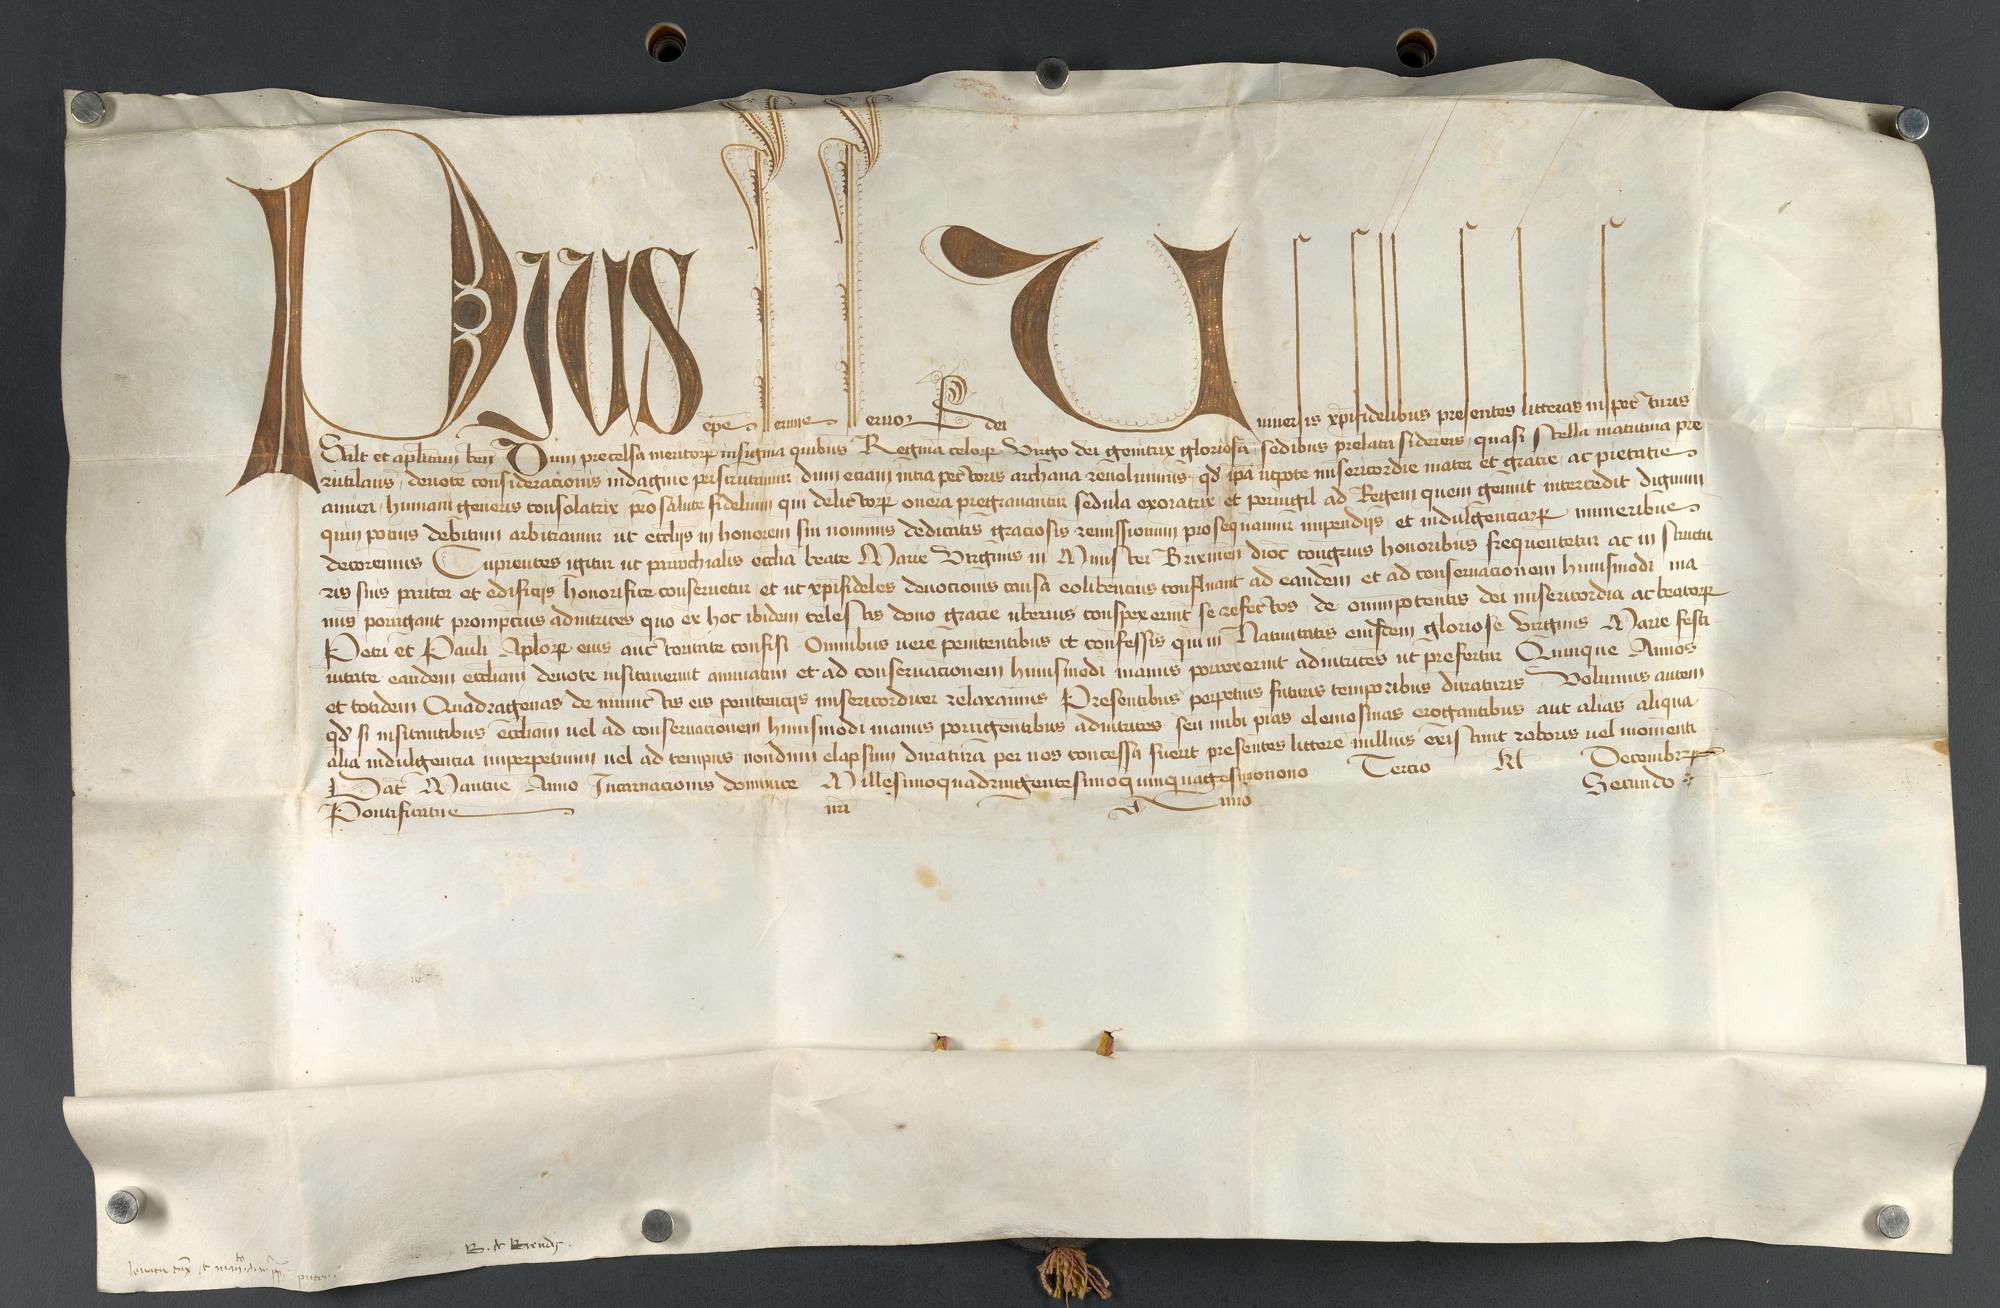 Pius epc seruus seruoꝝ dei Uniuersis xp̄ifidelibus presentes litteras inspecturis
Salt et aplicam ben Dum precelsa meritoꝝ insignia quibus Regina celoꝝ Virgo dei genitrix gloriosa sedibus prelata sidereis quasi stella matutina pre
rutilans deuote consideracionis indagine perscrutamur dum eciam intra pectoris archana reuoluimus qd ipa utpote misericordie mater et gracie ac pietatis
amica humani generis consolatrix pro salute fidelium qui delictoꝝ onera pregrauantur sedula exoratrix et peruigil ad Regem quem genuit intercedit dignum
quin potius debitum arbitramur ut ecclijs in honorem sui nominis dedicatis graciosis remissionum prosequamur impendijs et indulgenciaꝝ muneribus
decoremus Cupientes igitur ut parrochialis ecclia beate Marie Virginis in Munster Brixinen dioc congruis honoribus frequentetur ac in structu
ris suis pariter et edificijs honorifice conseruetur et ut xp̄ifideles deuocionis causa eo libencius confluant ad eandem et ad conseruacionem huiusmodi ma
nus porrigant promptius adiutrices quo ex hoc ibidem celestis dono gracie uberius conspexerint se refectos de omnipotentis dei misericordia ac beatoꝝ
Petri et Pauli Aploꝝ eius auctoritate confisi Omnibus uere penitentibus et confessis qui in Natiuitatis eiusdem gloriose Virginis Marie festi
uitate eandem eccliam deuote uisitauerint annuatim et ad conseruacionem huiusmodi manus porrexerint adiutrices ut prefertur Quinque Annos
et totidem Quadragenas de iniunctis eis penitencijs misericorditer relaxamus Presentibus perpetuis futuris temporibus duraturis Volumus autem
qd si uisitantibus eccliam uel ad conseruacionem huiusmodi manus porrigentibus adiutrices seu inibi pias elemosinas erogantibus aut alias aliqua
alia indulgentia imperpetuum uel ad tempus nondum elapsum duratura per nos concessa fuerit presentes littere nullius existant roboris uel momenti
Dat Mantue Anno Incarnacionis dominice Millesimoquadringentesimoquinquagesimonono Tercio Kl Decembrꝝ
Pontificatus nri Anno Secundo
B. de